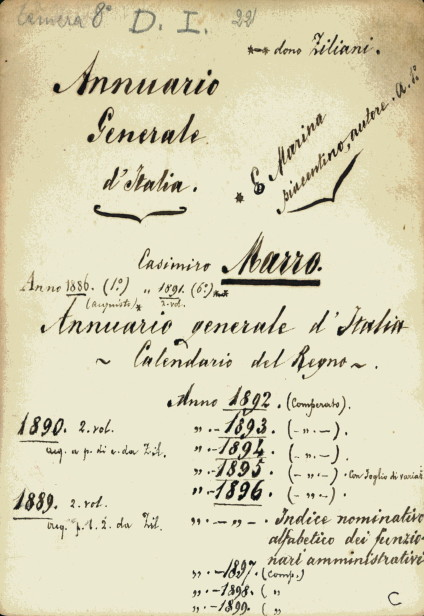 Camera 8° D. I. 22
*-* dono Ziliani.
Annuario
Generale
d'Italia.
* E Marina
piacentino, autore. A. P.
Casimiro Marro.
Anno 1886. (1°.) " 1891. (6°.)
(acquisto)* 2. vol.
Annuario generale d'Italia
~ Calendario del Regno ~.
Anno 1892. (Comperato).
1890. 2. vol. " . - 1893. (- " . -) .
acq. a p. di e. da Zil. " . - 1894. (- " . -) .
" . - 1895. (- " . -) . con foglio di variaz.
" . - 1896. (- " . -) .
1889. 2. vol. " . - " - . Indice nominativo
acq. p. l. 2. da Zil. alfabetico dei funzio-
nari amministrativi
" . - 1897. (Comp.)
" . - 1898. ( "
" . - 1899. ( "
C